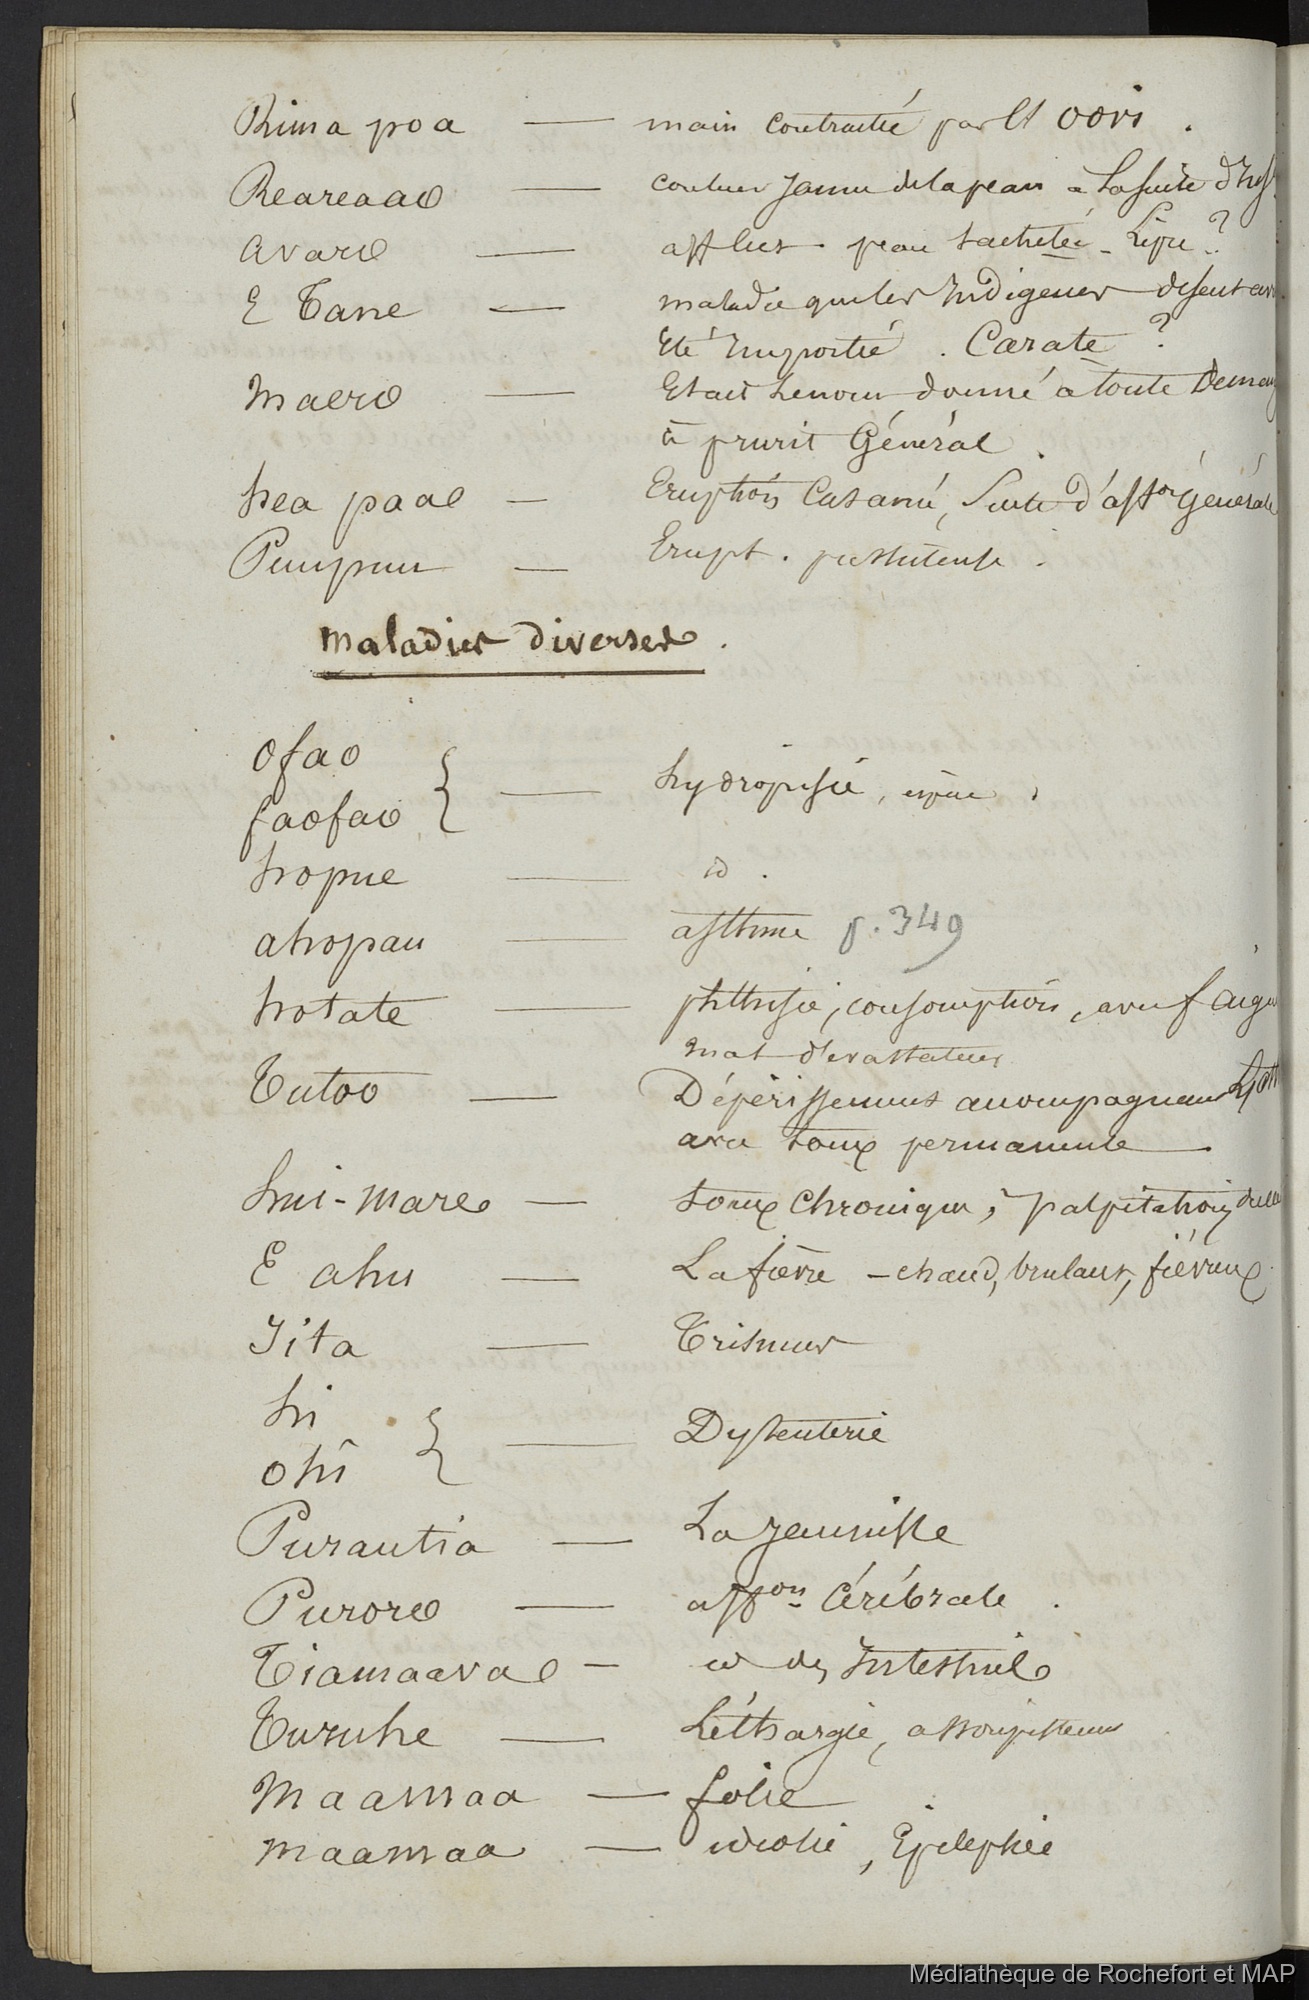 Rima poa — main contractée par lt oovi .
Reareaao — couleur jaune de la peau a la suite d'
avare — affect. peau tachetée - Lèpre ?
E Tane — maladie que les Indigenes disent av
été Importée . Carate ?
Maero — Etait le nom donné a toute Déman
à prurit Général .
hea paae — Eruption Cutanée, Suite d'affon Générale
Puupuu — Erupt. pustuleuse .
Maladies diverses .
Ofao
faofao } — hydropisie, .
hopue — id .
ahopau — asthme p. 349
hotate — phthisie, consomption, avec f aigu
mat dévastateur
Tutoo — Dépérissement accompagnant
avec toux permanente —
hui-mare — toux chronique, palpitation de la
E ahu — La fièvre - chaud, brulant, fiévreux.
Iita — Trismus
hi
ohi } — Dysenterie
Purautia — La Jeaunisse
Purore — affon Cérébrale .
Tiamaavae — id des Intestins
Turuhe — Léthargie, assoupissemt
Maamaa — folie
maamaa — idiotie, Epilepsie
Médiathèque de Rochefort et MAP